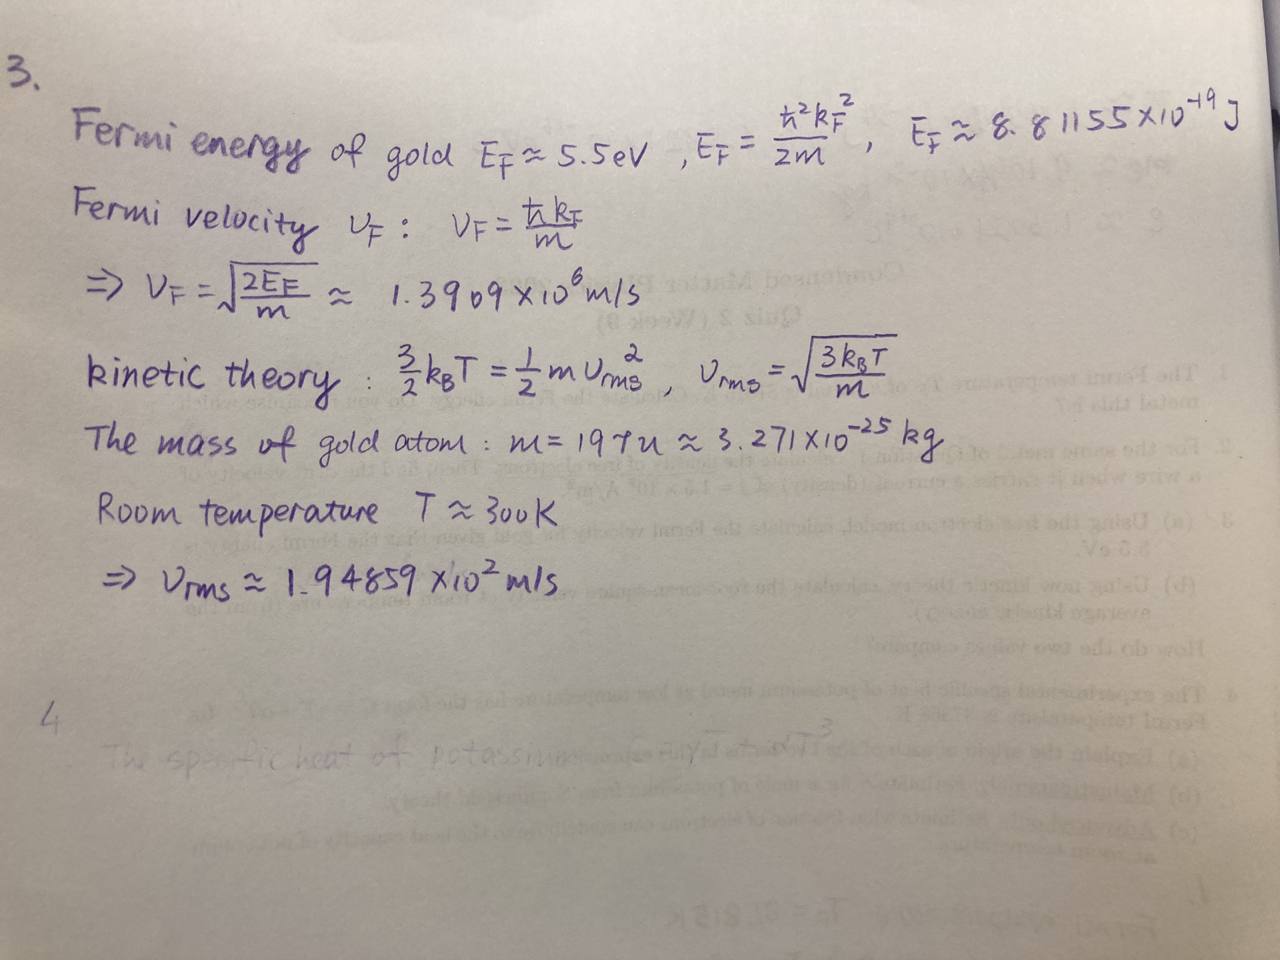 3.
Fermi energy of gold E_F ≈ 5.5eV , E_F = ħ²k_F²/2m , E_F ≈ 8.81155×10⁻¹⁹J
Fermi velocity v_F : v_F = ħk_F/m
⇒ v_F = √(2E_F/m) ≈ 1.3909×10⁶m/s
kinetic theory : 3/2 k_BT = 1/2 m v_rms² , v_rms = √(3k_BT/m)
The mass of gold atom : m = 197u ≈ 3.271×10⁻²⁵ kg
Room temperature T ≈ 300K
⇒ v_rms ≈ 1.94859×10² m/s
4
The specific heat of potassium